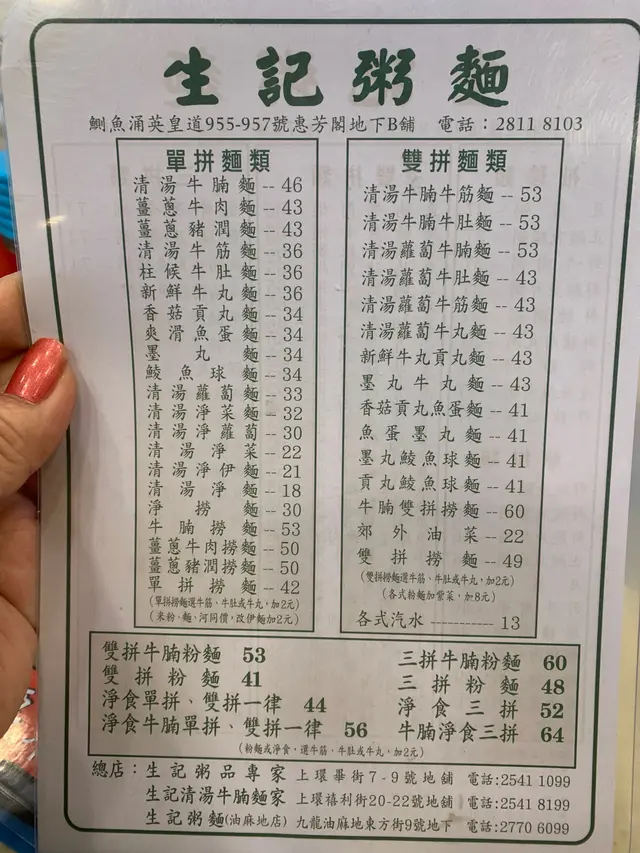 生記粥麵
鰂魚涌英皇道955-957號惠芳閣地下B舖 電話：2811 8103
單拼麵類
清湯牛腩麵 -- 46
薑蔥牛肉麵 -- 43
薑蔥豬潤麵 -- 43
清湯牛筋麵 -- 36
柱候牛肚麵 -- 36
新鮮牛丸麵 -- 36
香菇貢丸麵 -- 34
爽滑魚蛋麵 -- 34
墨丸麵 -- 34
鯪魚球麵 -- 34
清湯蘿蔔麵 -- 33
清湯淨菜麵 -- 32
清湯淨蘿蔔 -- 30
清湯淨菜 -- 22
清湯淨伊麵 -- 21
清湯淨麵 -- 18
淨撈麵 -- 30
牛腩撈麵 -- 53
薑蔥牛肉撈麵 -- 50
薑蔥豬潤撈麵 -- 50
單拼撈麵 -- 42
(單拼撈麵選牛筋、牛肚或牛丸，加2元)
(米粉、麵，河同價，改伊麵加2元)
雙拼麵類
清湯牛腩牛筋麵 -- 53
清湯牛腩牛肚麵 -- 53
清湯蘿蔔牛腩麵 -- 53
清湯蘿蔔牛肚麵 -- 43
清湯蘿蔔牛筋麵 -- 43
清湯蘿蔔牛丸麵 -- 43
新鮮牛丸貢丸麵 -- 43
墨丸牛丸麵 -- 43
香菇貢丸魚蛋麵 -- 41
魚蛋墨丸麵 -- 41
墨丸鯪魚球麵 -- 41
貢丸鯪魚球麵 -- 41
牛腩雙拼撈麵 -- 60
郊外油菜 -- 22
雙拼撈麵 -- 49
(雙拼撈麵選牛筋、牛肚或牛丸，加2元)
(各式粉麵加紫菜，加8元)
各式汽水 ----------- 13
雙拼牛腩粉麵 53
雙拼粉麵 41
淨食單拼、雙拼一律 44
淨食牛腩單拼、雙拼一律 56
三拼牛腩粉麵 60
三拼粉麵 48
淨食三拼 52
牛腩淨食三拼 64
(粉麵或淨食，選牛筋、牛肚或牛丸，加2元)
總店：生記粥品專家 上環畢街7-9號地舖 電話:2541 1099
生記清湯牛腩麵家 上環禧利街20-22號地舖 電話:2541 8199
生記粥麵(油麻地店) 九龍油麻地東方街9號地下 電話:2770 6099